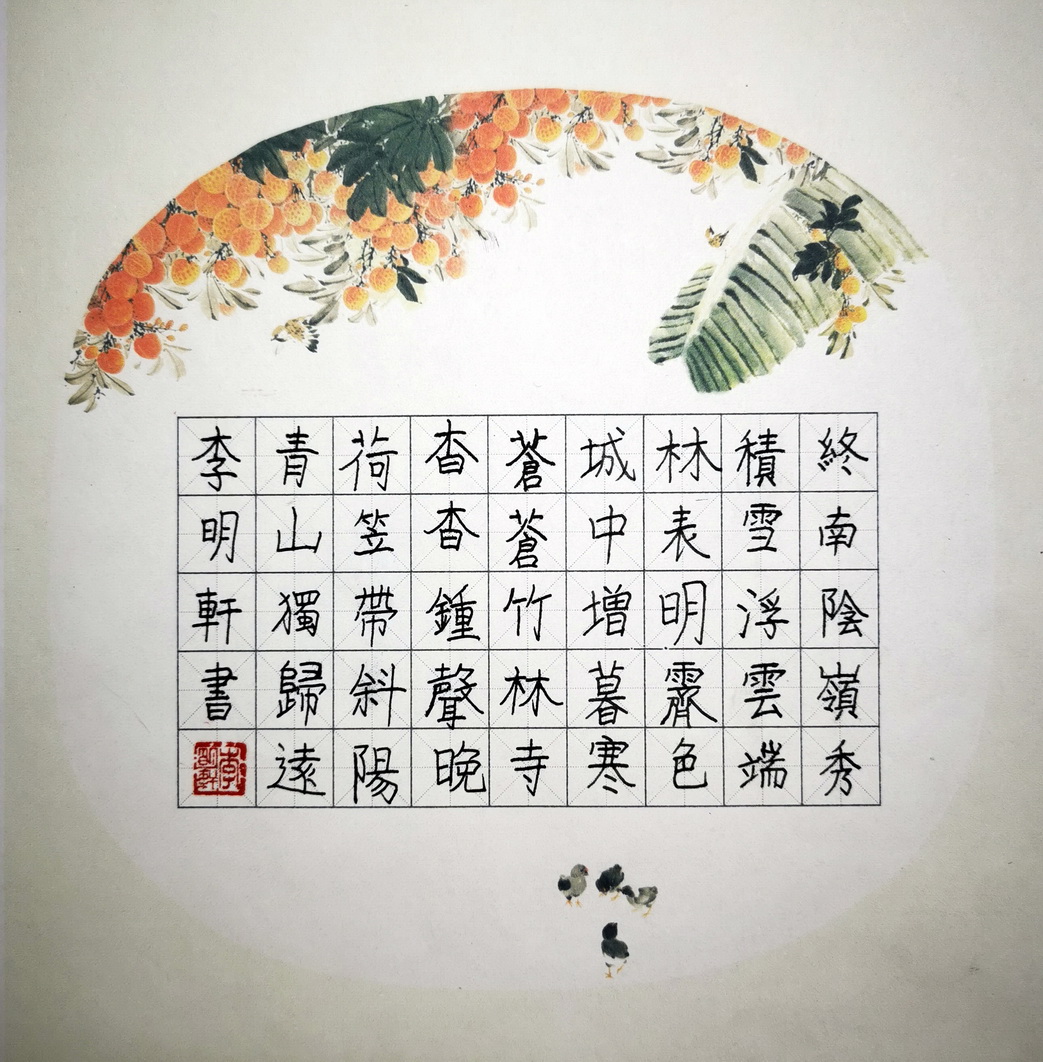 終南陰嶺秀
積雪浮雲端
林表明霽色
城中增暮寒
蒼蒼竹林寺
杳杳鍾聲晚
荷笠帶斜陽
青山獨歸遠
李明軒書